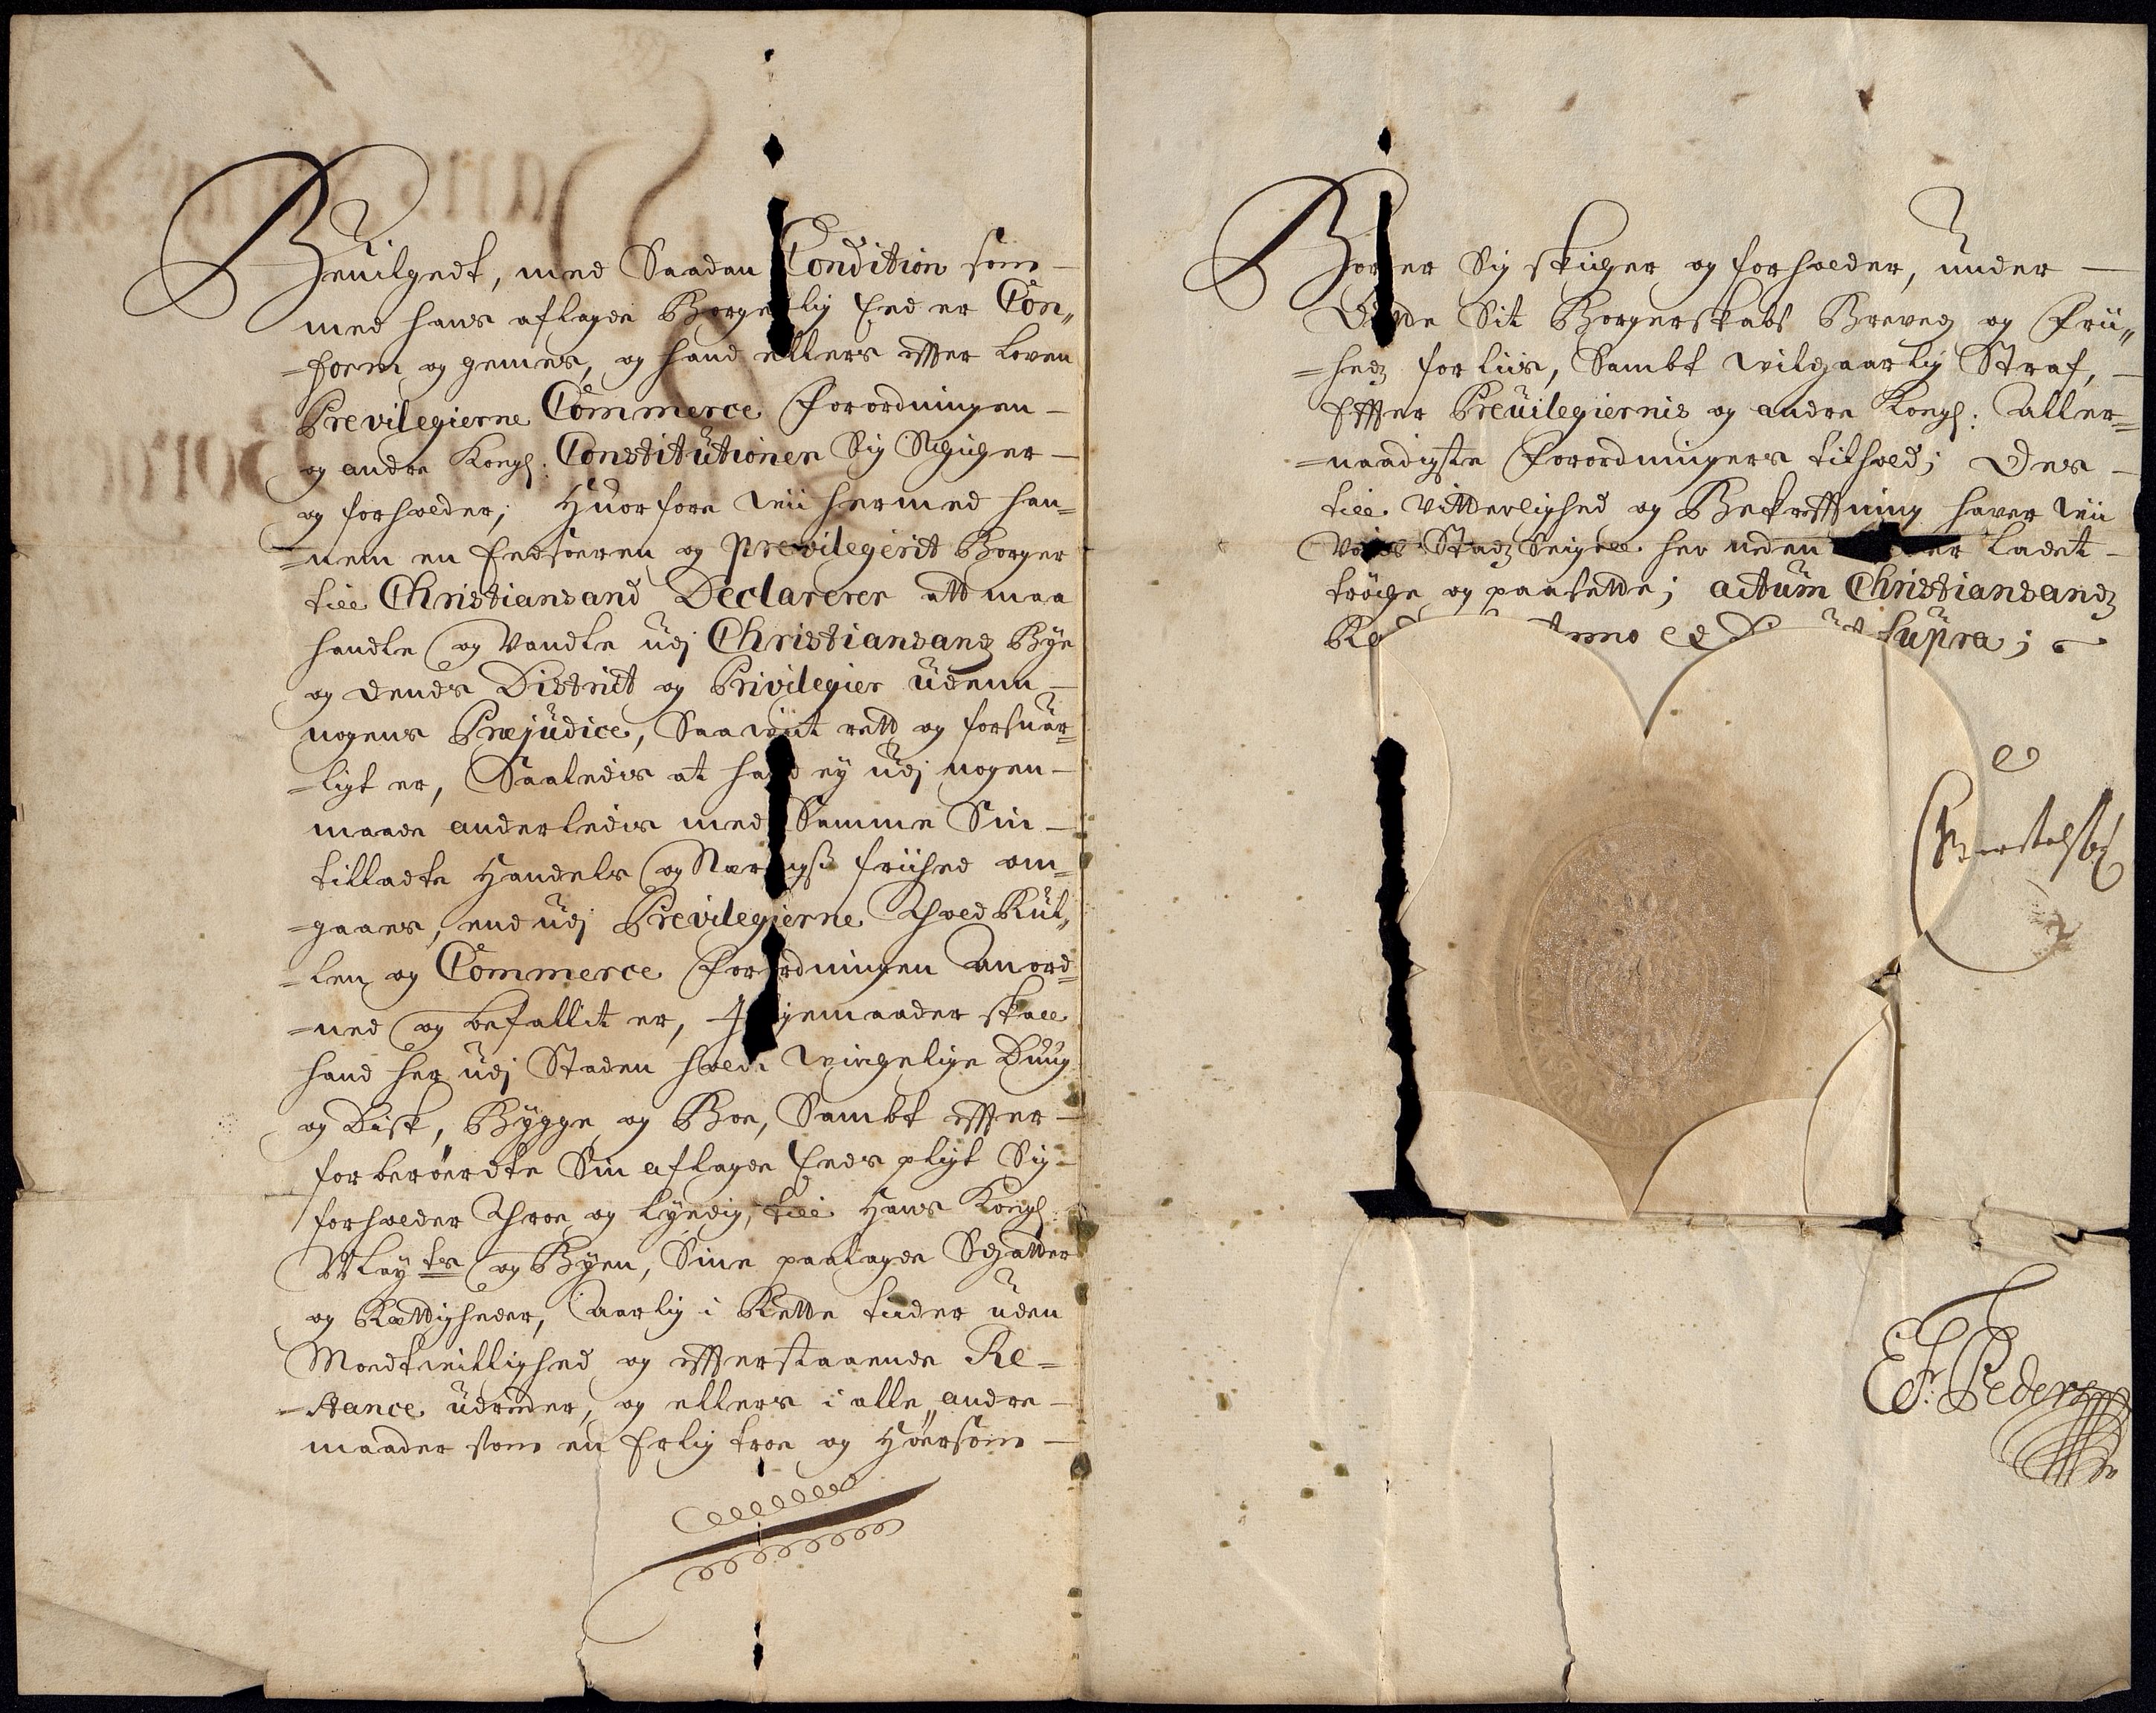 Bevilgedt, med Saadan Condition som
med hans aflagde Borgerlig Eed er Con„
=form og gemes, og hand ellers effter Loven
Previlegierne Commerce Forordningen
og andre Kongl: Constitutioner Sig Schicher
og forholder; Huorfore Wii hermed han=
=nem en Eedsoeren og previlegerit Borger
till Christiansand Declarerer att maa
handle og Vandle udj Christiansandz Bye
og dends District og Privilegier uden
nogens Præjudice, Saawiit rett og forsuar=
=ligt er, Saaledis at hand ey udj nogen
maade anderledis med Samme Sin
tilladte Handels og Nærings friihed om=
=gaaer, end udj Previlegierne Thold Rul„
=len og Commerce Forordningen anord=
=ned og befallit er, I ligemaader skall
hand her udj Staden holde Wirchelige Duug
og Disk, Bygge og Boe, Sambt effter
forberöerdte Sin aflagde Eeds pligt Sig
forholder Throe og Lydig, till Hans Kongl
Mayts og Byen, Sine paalagde Schatter
og Rættigheder, Aarlig i Rette tiider uden
Moedtwillighed og effterstaaende Re=
=stance udreder, og ellers i alle andre
maader som en Erlig troe og Höersom
Borger Sig skicher og forholder, under
Dende Sit Borgerskabs Brevez og Frii„
=hedz forliis, Sambt wilchaarlig Straf,
Effter Previlegiernis og andre Kongl: Aller=
=naadigste Forordningers tilhold; Des
till Vitterlighed og Bekreffting haver Wii
Vores Stadz Seigell her neden under ladet
tröche og paasette; actum Christiansandz
Anno et ut supra;
E F: Peders